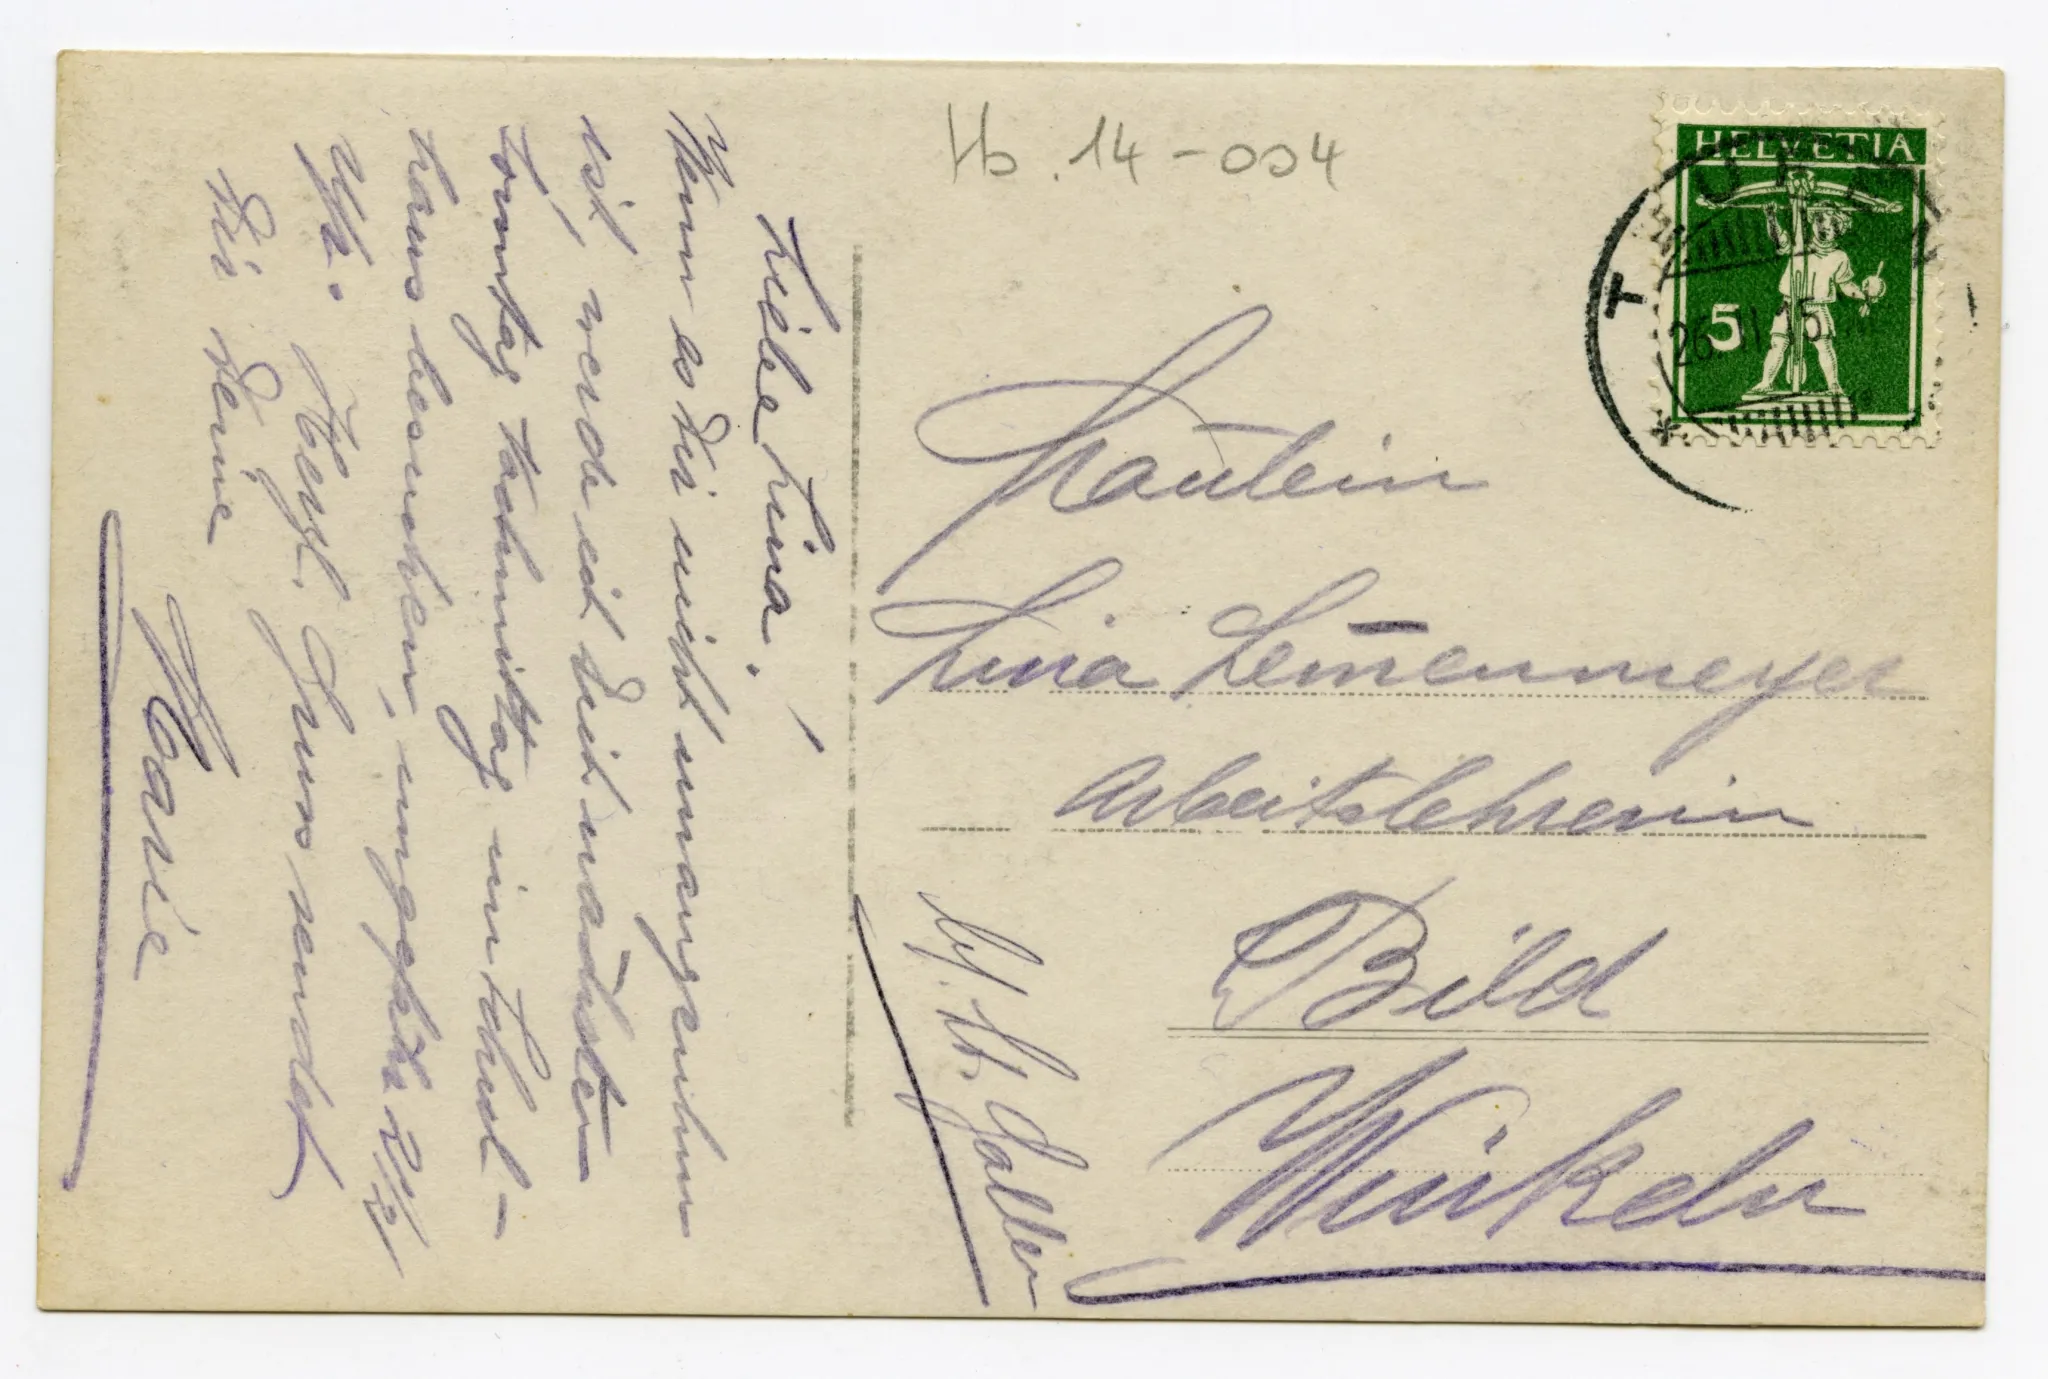 Hb. 14-004
HELVETIA
5
T
26. II. 15.
Liebe Lina!
Wenn es Dir nicht unangenehm
ist, werde ich Dich nächsten
Sonntag Nachmittag im Schul-
haus besuchen, ungefähr 2 1/2
Uhr. Herzl. Gruss sendet
Dir Deine
Marie
Fräulein
Lina Lem̅enmeyer
Arbeitslehrerin
Bild
Winkeln
bf. St. Gallen